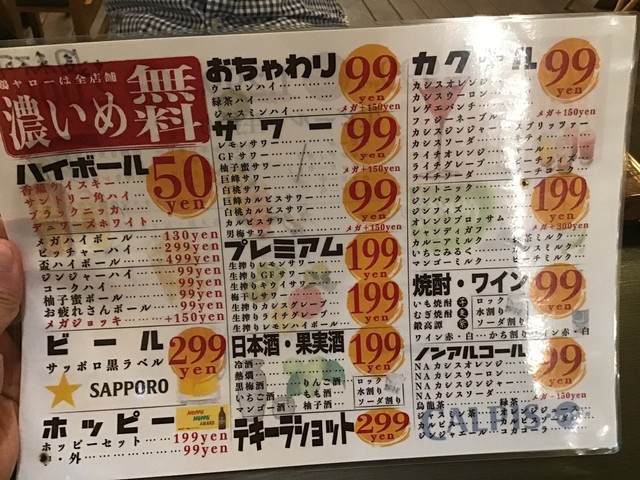 鶏ヤローは全店舗
濃いめ無料
ハイボール
50yen
香薫ウイスキー
サントリー角ハイ
ブラックニッカ
デュワーズホワイト
メガハイボール 130yen
ピッチャーハイ 299yen
盃ハイボール 499yen
ジンジャーハイ 99yen
コークハイ 99yen
柚子蜜ボール 99yen
お疲れさんボール 99yen
メガジョッキ +150yen
ビール
299yen
サッポロ黒ラベル
SAPPORO
ホッピー
ホッピーセット 199yen
中・外 99yen
おちゃわり
99yen
ウーロンハイ
緑茶ハイ
ジャスミンハイ
メガ+150yen
サワー
99yen
レモンサワー
GFサワー
メガ+150yen
柚子蜜サワー
巨峰サワー
白桃サワー
99yen
巨峰カルピスサワー
白桃カルピスサワー
カルピスサワー
男梅サワー
メガ+150yen
プレミアム
199yen
生搾りレモンサワー
生搾りGFサワー
生搾りキウイサワー
梅干しサワー
199yen
生搾りカシスグレープ
生搾りライチグレープ
生搾りレモンハイボール
日本酒・果実酒
199yen
冷酒
熱燗
黒梅酒
いちご酒
マンゴー酒
りんご酒
もも酒
柚子酒
ロック
水割り
ソーダ割り
テキーラショット
299yen
99yen
カシスオレンジ
カシスウーロン
レゲエパンチ
メガ+150yen
ファジーネーブル
カシスジンジャー
カシスソーダ
ライチオレンジ
ライチグレープ
ライチソーダ
199yen
ジントニック
ジンバック
ジンフィズ
オレンジブロッサム
メガ+300yen
カルーアミルク
いちごみるく
焼酎・ワイン
99yen
いも焼酎
むぎ焼酎
鍛高譚
ロック
水割り
ソーダ割り
ワイン赤・白
かち割りワイン赤・白
ノンアルコール
99yen
NAカシスオレンジ
NAカシスウーロン
NAカシスジンジャー
NAカシスソーダ
メガ+150yen
烏龍茶
緑茶
コカコーラ
CALPIS